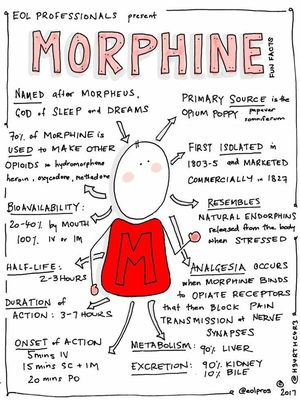 EOL PROFESSIONALS present
MORPHINE
FUN FACTS
NAMED after MORPHEUS,
GOD of SLEEP and DREAMS
PRIMARY SOURCE is the
OPIUM POPPY papaver
somniferum
70% of MORPHINE is
USED to MAKE OTHER
OPIOIDS hydromorphone
heroin, oxycodone, methadone
FIRST ISOLATED in
1803-5 and MARKETED
COMMERCIALLY in 1827
BIOAVAILABILITY:
20-40% by MOUTH
100% IV or IM
RESEMBLES
NATURAL ENDORPHINS
released from the body
when STRESSED
M
HALF-LIFE:
2-3 HOURS
ANALGESIA OCCURS
when MORPHINE BINDS
to OPIATE RECEPTORS
that then BLOCK PAIN
TRANSMISSION at NERVE
SYNAPSES
DURATION of
ACTION: 3-7 HOURS
ONSET of ACTION
5mins IV
15mins SC + IM
20mins PO
METABOLISM: 90% LIVER
EXCRETION: 90% KIDNEY
10% BILE
@eolpros
© 2017